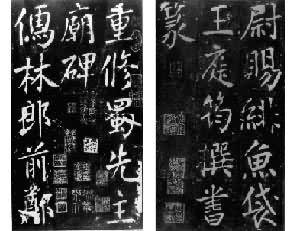 重修蜀先主
廟碑
儒林郎前鄭
尉賜緋魚袋
王庭筠撰書
篆